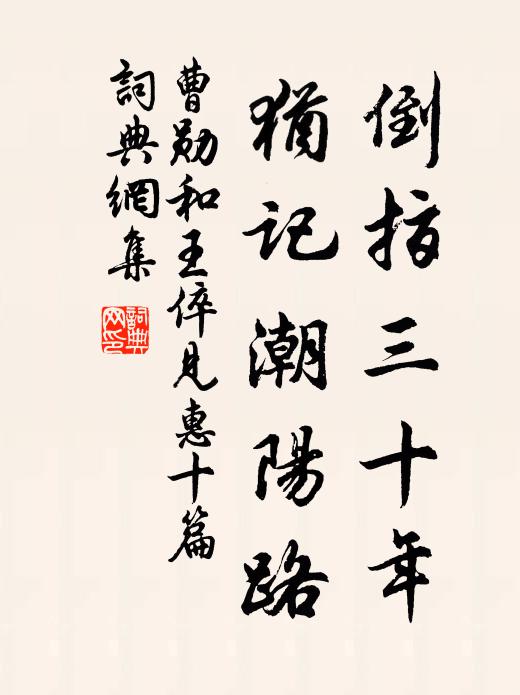 倒指三十年
猶記潮陽路
曹勛和王倅見惠十篇
詞典網集
詞典
网印